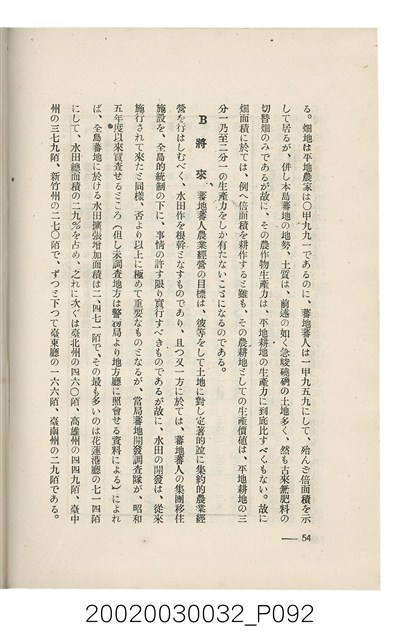 る。畑地は平地農家は〇甲九九一であるのに、蕃地蕃人は一甲九五九にして、殆んど倍面積を示
して居るが、併し本島蕃地の地勢、土質は、前述の如く急峻磽确の土地多く、然も古來無肥料の
切替畑のみであるが故に、その農作物生產力は、平地耕地の生產力に到底比すべくもない。故に
畑面積に於ては、例へ倍面積を耕作すと雖も、その農耕地としての生產價値は、平地耕地の三
分一乃至二分一の生產力をしか有たないことになるのである。
B 將來、 蕃地蕃人農業經營の目標は、彼等をして土地に對し定著的竝に集約的農業經
營を行はしむべく、水田作を根幹となすものであり、且つ又一方に於ては、蕃地蕃人の集團移住
施設を、全島的統制の下に、事情の許す限り實行すべきものであるが故に、水田の開發は、從來
施行されて來たと同樣、否より以上に極めて重要なものとなるが、當局蕃地開發調査隊が、昭和
五年度以來實査せるところ(但し未調査地方は警務局より地方廳に照會せる資料による)によれ
ば、全島蕃地に於ける水田擴張增加面積は二、四七一陌で、その最も多いのは花蓮港廳の七一四陌
にして、水田總面積の二九%を占め、之れに次ぐは臺北州の四六〇陌、高雄州の四四九陌、臺中
州の三七九陌、新竹州の二七〇陌で、ずつと下つて臺東廳の一六六陌、臺南州の二九陌である。
— 54
20020030032_P092